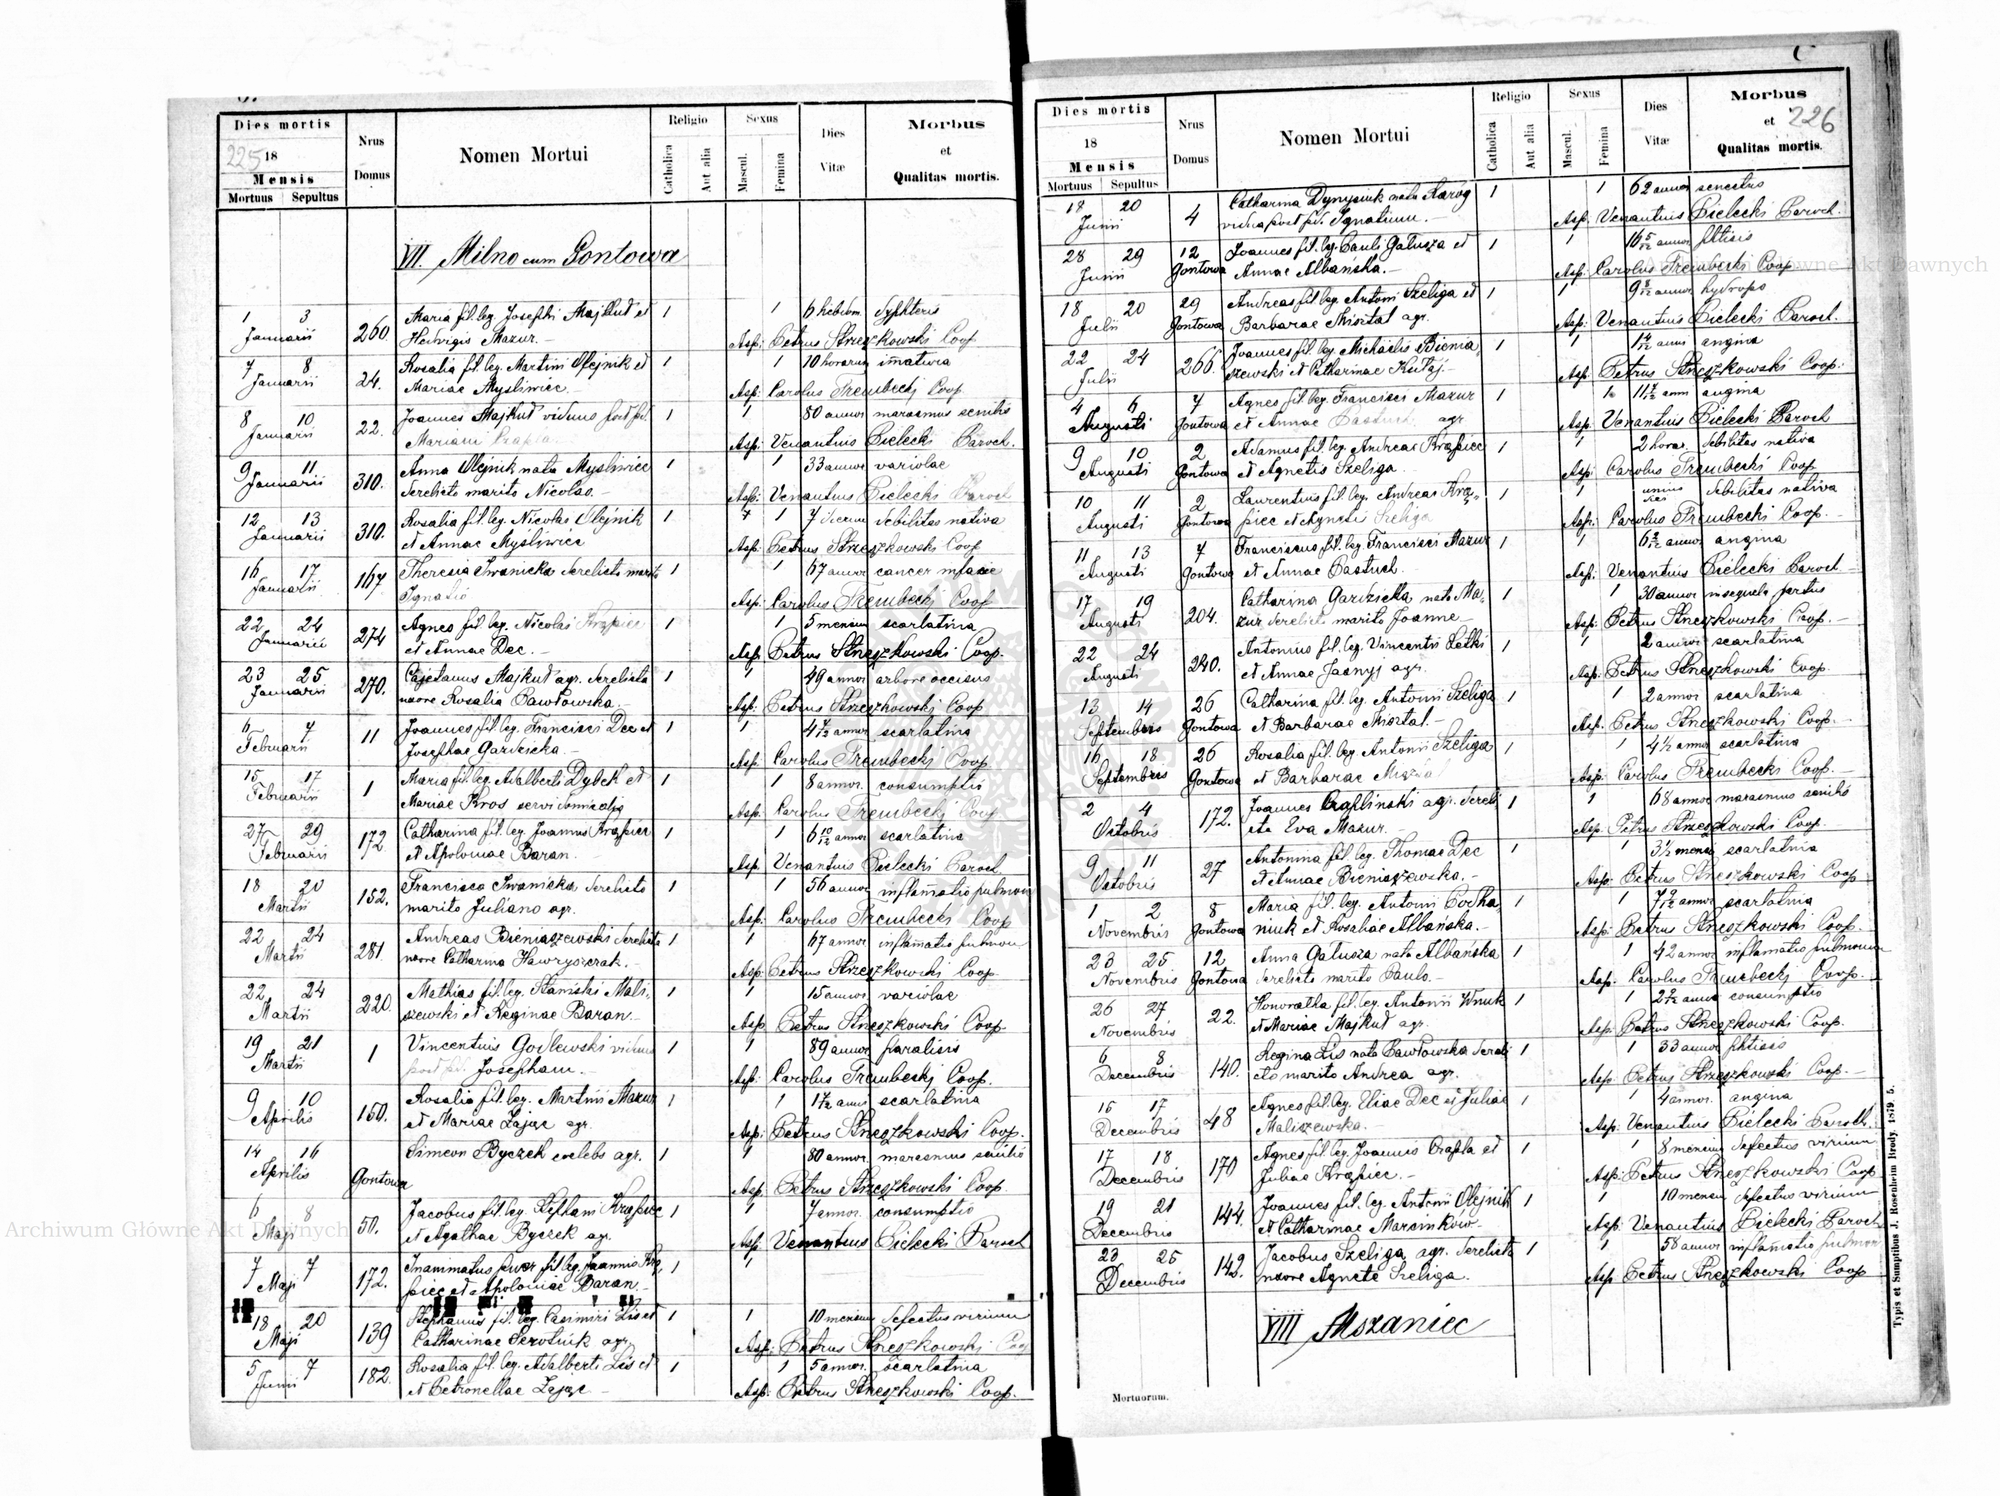 Dies mortis
225 18
Mensis
Mortuus Sepultus
Nrus Domus
Nomen Mortui
Religio
Catholica
Aut alia
Sexus
Mascul.
Femina
Dies Vitæ
Morbus
et
Qualitas mortis.
VII. Milno cum Gontowa
1 3 Maria fil. leg. Josephi Majkut et 1 1 6 hebdom. dyphteris
Januarii 260. Hedvigis Mazur. Asp: Petrus Streszkowski Coop
7 8 Rosalia fil. leg. Martini Olejnik et 1 1 10 horarum imatura
Januarii 24. Mariae Mysliwiec. Asp: Carolus Trembecki Coop
8 10 Joannes Majkut viduus post fd. 1 1 80 annor marasmus senilis
Januarii 22. Mariam Asp: Venantius Bielecki Paroch.
9 11 Anna Olejnik nata Mysliwiec 1 1 33 annor variolae
Januarii 310. derelicto marito Nicolao. Asp: Venantius Bielecki Paroch
12 13 Rosalia fil. leg. Nicolai Olejnik 1 1 7 dierum debilitas nativa
Januarii 310. et Annae Mysliwiec Asp: Petrus Streszkowski Coop
16 17 Theresia Iwanicka derelicto marito 1 67 annor cancer in facie
Januarii 167 Ignatio Asp: Carolus Trembecki Coop
22 24 Agnes fil. leg. Nicolai Krąpiec 1 1 5 mensium scarlatina
Januarii 274 et Annae Dec. Asp: Petrus Streszkowski Coop.
23 25 Cajetanus Majkut agr. derelicta 1 1 49 annor arbore occisus
Januarii 270. uxore Rosalia Pawłowska. Asp: Petrus Streszkowski Coop
6 7 Joannes fil. leg. Francisci Dec et 1 1 4 annor scarlatina
Februarii 11 Josephae Gardzicka. Asp: Carolus Trembecki Coop
15 17 Maria fil. leg. Adalberti Dybek et 1 1 8 annor. consumptio
Februarii 1 Mariae Kros Asp: Carolus Trembecki Coop
27 29 Catharina fil. leg. Joannis Krąpiec 1 1 6 10/12 annor scarlatina
Februarii 172 et Apoloniae Baran. Asp: Venantius Bielecki Paroch
18 20 Francisca Iwanicka derelicto 1 1 56 annor inflamatio pulmon
Martii 152. marito Juliano agr. Asp: Carolus Trembecki Coop
22 24 Andreas Bieniaszewski derelicta 1 1 67 annor inflamatio pulmon
Martii 281. uxore Catharina Hawryszczak. Asp: Petrus Streszkowski Coop
22 24 Mathias fil. leg. Stanislai Mali- 1 1 15 annor variolae
Martii 220. szewski et Reginae Baran. Asp: Petrus Streszkowski Coop
19 21 Vincentius Godlewski viduus 1 1 89 annor paralisis
Martii 1 post fd. Josepham. Asp: Carolus Trembecki Coop.
9 10 Rosalia fil. leg. Martini Mazur 1 1 scarlatina
Aprilis 150. et Mariae Zając agr. Asp: Petrus Streszkowski Coop.
14 16 Simeon Byczek coelebs agr. 1 1 80 annor. marasmus senilis
Aprilis Gontowa Asp: Petrus Streszkowski Coop
6 8 Jacobus fil. leg. Stephani Krąpiec 1 7 annor. consumptio
Maji 50. et Agathae Byczek agr. Asp: Venantius Bielecki Paroch
7 7 Inanimatus puer fil. leg. Joannis Krą- 1 1
Maji 172. piec et Apoloniae Baran.
18 20 Stephanus fil. leg. Casimiri Lis et 1 1 10 mensium defectus virium
Maji 139 Catharinae Serotniuk agr. Asp: Petrus Streszkowski Coop
5 7 Rosalia fil. leg. Adalberti Lis et 1 1 5 annor. scarlatina
Junii 182. et Petronellae Zając Asp: Petrus Streszkowski Coop.
Dies mortis
18
Mensis
Mortuus Sepultus
Nrus Domus
Nomen Mortui
Religio
Catholica
Aut alia
Sexus
Mascul.
Femina
Dies Vitæ
Morbus
et 226
Qualitas mortis.
18 20 Catharina Dynysiuk nata Karog 1 1 62 annor senectus
Junii 4 vidua post fd. Ignatium. Asp: Venantius Bielecki Paroch.
28 29 12 Joannes fil. leg. Pauli Gałusza et 1 1 16 5/12 annor phtisis
Junii Gontowa Annae Albańska. Asp: Carolus Trembecki Coop
18 20 29 Andreas fil. leg. Antoni Szeliga et 1 1 9 annor hydrops
Julii Gontowa Barbarae Misztal agr. Asp: Venantius Bielecki Paroch.
22 24 Joannes fil. leg. Michaelis Bienia- 1 1 angina
Julii 266. szewski et Catharinae Kułaj. Asp: Petrus Streszkowski Coop.
4 6 7 Agnes fil. leg. Francisci Mazur 1 1 angina
Augusti Gontowa et Annae Pastuch agr Asp: Venantius Bielecki Paroch
9 10 2 Adamus fil. leg. Andreae Krąpiec 1 1 2 horar. debilitas nativa
Augusti Gontowa et Agnetis Szeliga. Asp: Carolus Trembecki Coop
10 11 2 Laurentius fil. leg. Andreae Krą- 1 1 unius debilitas nativa
Augusti Gontowa piec et Agnetis Szeliga Asp: Carolus Trembecki Coop.
11 13 7 Franciscus fil. leg. Francisci Mazur 1 1 6 annor angina
Augusti Gontowa et Annae Pastuch. Asp: Venantius Bielecki Paroch
17 19 Catharina Gardzicka nata Ma- 1 1 30 annor in sequela partus
Augusti 204. zur derelicto marito Joanne Asp: Petrus Streszkowski Coop.
22 24 Antonius fil. leg. Vincentii Letki 1 1 2 annor scarlatina
Augusti 240. et Annae Jasnyj agr. Asp: Petrus Streszkowski Coop.
13 14 26 Catharina fil. leg. Antonii Szeliga 1 1 2 annor scarlatina
Septembris Gontowa et Barbarae Misztal. Asp: Petrus Streszkowski Coop.
16 18 26 Rosalia fil. leg. Antonii Szeliga 1 1 4 1/2 annor scarlatina
Septembris Gontowa et Barbarae Misztal Asp: Carolus Trembecki Coop.
2 4 Joannes Czapliński agr. dereli- 1 1 68 annor marasmus senilis
Octobris 172. cta Eva Mazur. Asp: Petrus Streszkowski Coop.
9 11 Antonina fil. leg. Thomae Dec 1 1 3 1/2 mensi scarlatina
Octobris 27 et Annae Bieniaszewska. Asp: Petrus Streszkowski Coop
1 2 8 Maria fil. leg. Antoni Podha- 1 1 7 annor scarlatina
Novembris Gontowa niuk et Rosaliae Albańska. Asp: Petrus Streszkowski Coop.
23 25 12 Anna Gałusza nata Albańska 1 42 annor inflamatio pulmonum
Novembris Gontowa derelicto marito Paulo. Asp: Carolus Trembecki Coop.
26 27 Honoratha fil. leg. Antonii Wnuk 1 1 2 annor consumptio
Novembris 22. et Mariae Majkut agr. Asp: Petrus Streszkowski Coop.
6 8 Regina Lis nata Pawłowska dereli- 1 1 33 annor phtisis
Decembris 140. cto marito Andrea agr. Asp: Petrus Streszkowski Coop.
15 17 Agnes fil. leg. Eliae Dec et Juliae 1 1 4 annor. angina
Decembris 48 Maliszewska. Asp: Venantius Bielecki Paroch.
17 18 Agnes fil. leg. Joannis Czapla et 1 1 8 mensium defectus virium
Decembris 170 Juliae Krąpiec. Asp: Petrus Streszkowski Coop
19 21 Joannes fil. leg. Antoni Olejnik 1 1 10 mensium defectus virium
Decembris 144. et Catharinae Marcinków. Asp: Venantius Bielecki Paroch
23 25 Jacobus Szeliga agr. derelicta 1 1 58 annor inflamatio pulmon
Decembris 142. uxore Agnete Szeliga. Asp: Petrus Streszkowski Coop
VIII Mszaniec
Mortuorum.
Typis et Sumptibus J. Rosenheim Brody. 1879. 5.
Archiwum Główne Akt Dawnych
Archiwum Główne Akt Dawnych